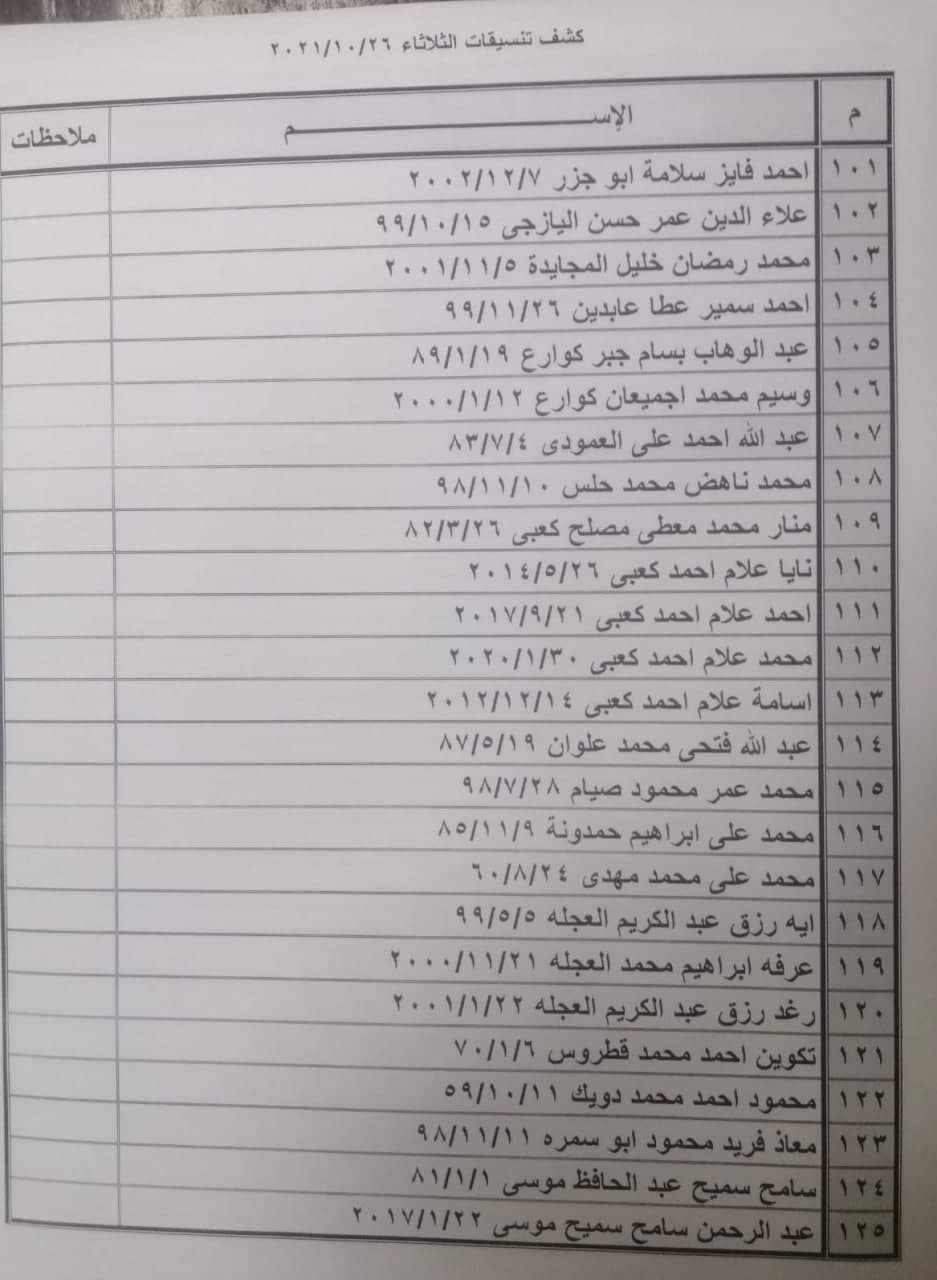 كشف تنسيقات الثلاثاء ٢٠٢١/١٠/٢٦
م الإســـــــــــــــــــــم ملاحظات
١٠١ احمد فايز سلامة ابو جزر ٢٠٠٢/١٢/٧
١٠٢ علاء الدين عمر حسن اليازجى ٩٩/١٠/١٥
١٠٣ محمد رمضان خليل المجايدة ٢٠٠١/١١/٥
١٠٤ احمد سمير عطا عابدين ٩٩/١١/٢٦
١٠٥ عبد الوهاب بسام جبر كوارع ٨٩/١/١٩
١٠٦ وسيم محمد اجميعان كوارع ٢٠٠٠/١/١٢
١٠٧ عبد الله احمد على العمودى ٨٣/٧/٤
١٠٨ محمد ناهض محمد حلس ٩٨/١١/١٠
١٠٩ منار محمد معطى مصلح كعبى ٨٢/٣/٢٦
١١٠ نايا علام احمد كعبى ٢٠١٤/٥/٢٦
١١١ احمد علام احمد كعبى ٢٠١٧/٩/٢١
١١٢ محمد علام احمد كعبى ٢٠٢٠/١/٣٠
١١٣ اسامة علام احمد كعبى ٢٠١٢/١٢/١٤
١١٤ عبد الله فتحى محمد علوان ٨٧/٥/١٩
١١٥ محمد عمر محمود صيام ٩٨/٧/٢٨
١١٦ محمد على ابراهيم حمدونة ٨٥/١١/٩
١١٧ محمد على محمد مهدى ٦٠/٨/٢٤
١١٨ ايه رزق عبد الكريم العجله ٩٩/٥/٥
١١٩ عرفه ابراهيم محمد العجله ٢٠٠٠/١١/٢١
١٢٠ رغد رزق عبد الكريم العجله ٢٠٠١/١/٢٢
١٢١ تكوين احمد محمد قطروس ٧٠/١/٦
١٢٢ محمود احمد محمد دويك ٥٩/١٠/١١
١٢٣ معاذ فريد محمود ابو سمره ٩٨/١١/١١
١٢٤ سامح سميح عبد الحافظ موسى ٨١/١/١
١٢٥ عبد الرحمن سامح سميح موسى ٢٠١٧/١/٢٢